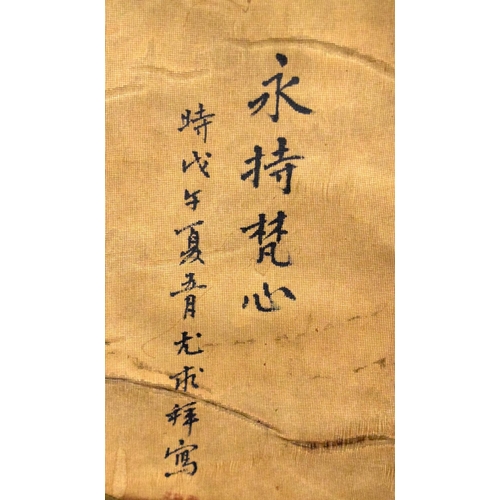 永持梵心
時戊午夏五月尤求拜寫